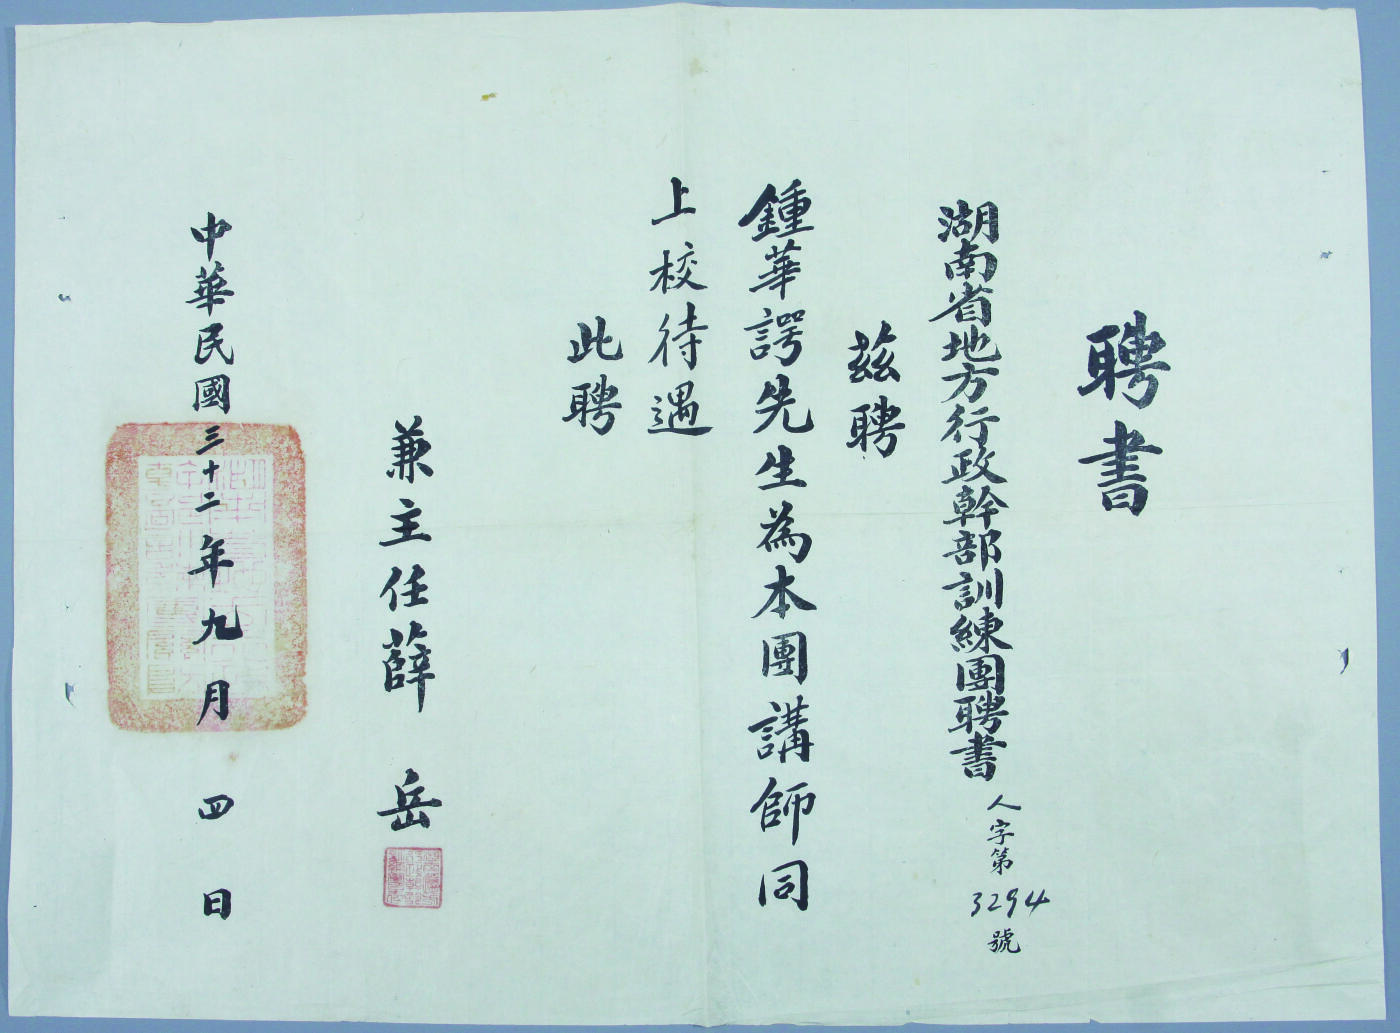 聘書
湖南省地方行政幹部訓練團聘書 人字第3294號
茲聘
鍾華諤先生為本團講師同
上校待遇
此聘
兼主任薛岳
中華民國三十二年九月四日